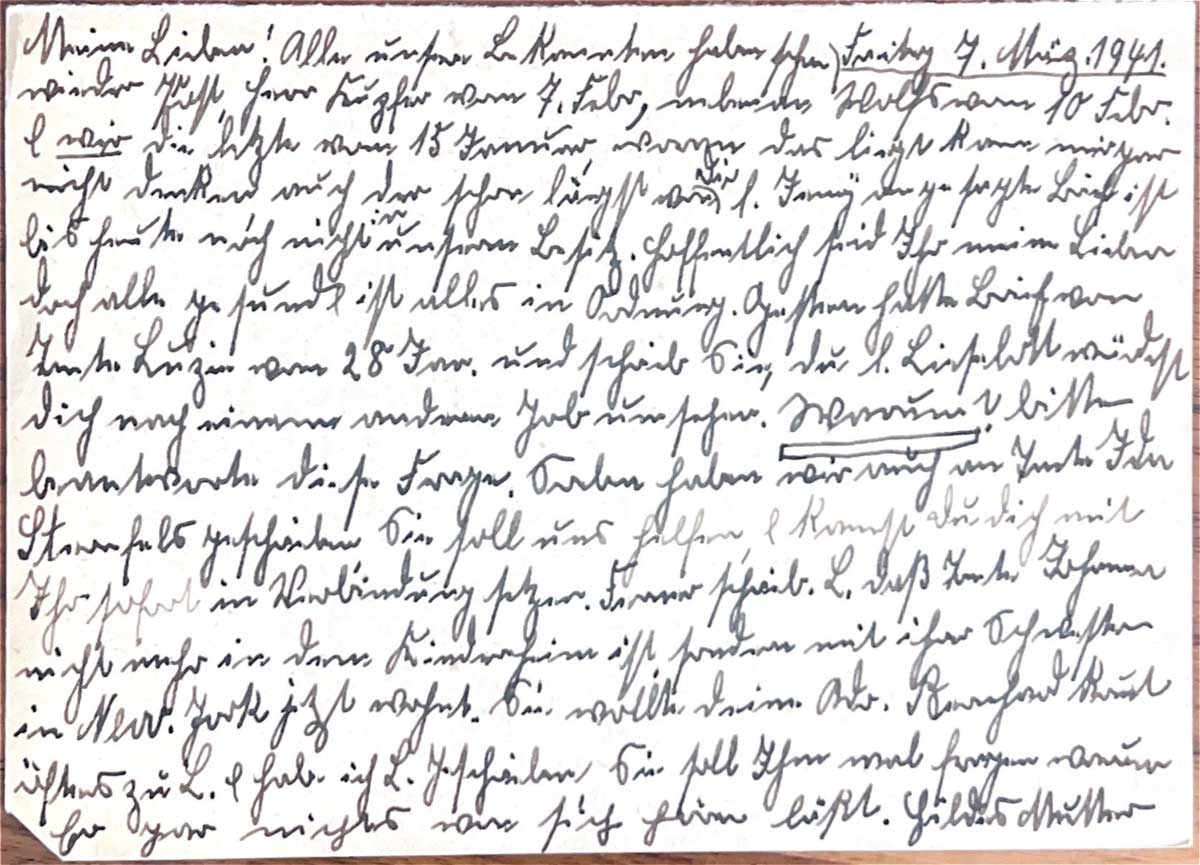 Meine Lieben! Alle unsere Bekannten haben schon Freitag 7. März. 1941.
wieder Post, Herr Kupfer vom 7. Febr, nebenan Wolfs vom 10 Febr.
& wir die letzte vom 15 Januar, woran das liegt kann mir gar
nicht denken auch der schon längst von Dir l. Jenny angesagte Brief ist
bis heute noch nicht in unserem Besitz. Hoffentlich seid Ihr meine Lieben
doch alle gesund & ist alles in Ordnung. Gestern hatte Brief von
Tante Luzie vom 28 Jan. und schrieb Sie, du l. Lieselott würdest
dich nach einem anderen Job umsehen. Warum? bitte
beantworte diese Frage. Soeben haben wir auch an Tante Ida
Sternfels geschrieben Sie soll uns helfen, & kannst du dich mit
Ihr sofort in Verbindung setzen. Ferner schrieb. L. daß Tante Johanna
nicht mehr in dem Kinderheim ist, sondern mit ihrer Schwester
in New. York jetzt wohnt. Sie wollte deine Adr. Bernhard kommt
öfters zu L. & habe ich L. geschrieben, Sie soll Ihm mal fragen warum
Er gar nichts von sich hören läßt. Hildes Mutter